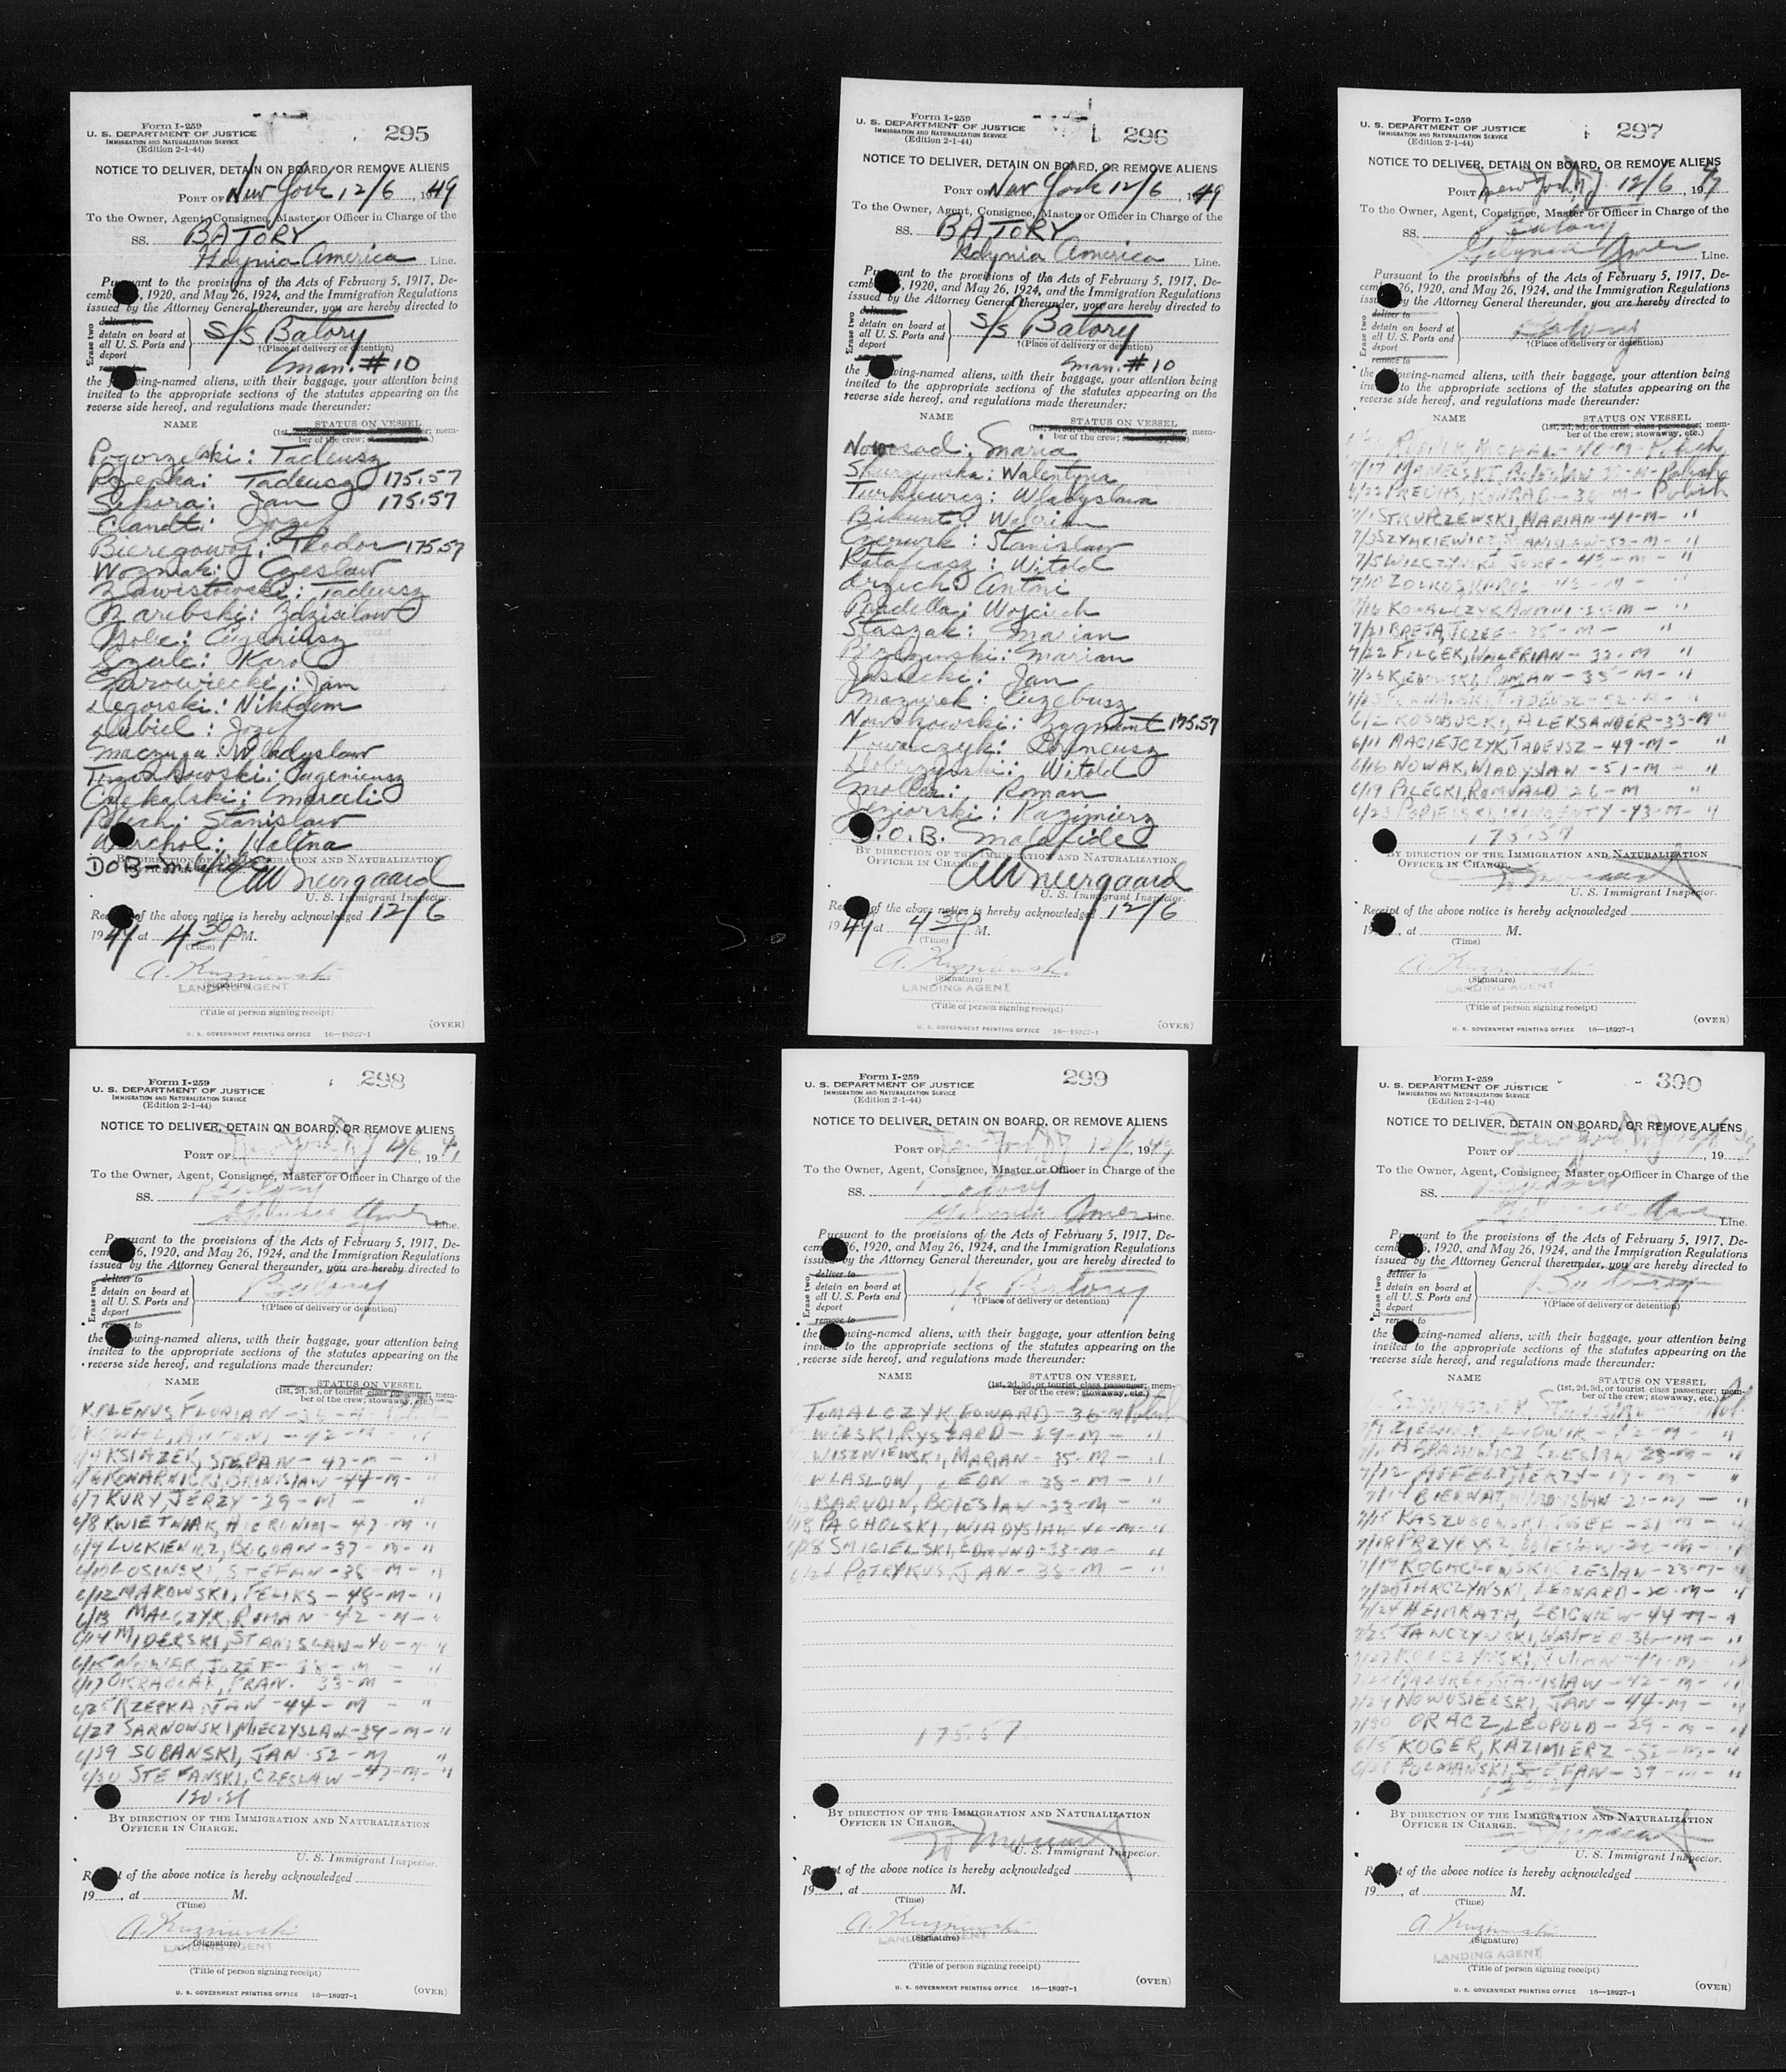 Form I-259
U. S. DEPARTMENT OF JUSTICE
IMMIGRATION AND NATURALIZATION SERVICE
(Edition 2-1-44)
295
NOTICE TO DELIVER, DETAIN ON BOARD, OR REMOVE ALIENS
PORT OF New York 12/6, 1949
To the Owner, Agent, Consignee, Master or Officer in Charge of the
SS. BATORY
Gdynia America Line.
Pursuant to the provisions of the Acts of February 5, 1917, De-
cemb 26, 1920, and May 26, 1924, and the Immigration Regulations
issued by the Attorney General thereunder, you are hereby directed to
Erase two
deliver to
detain on board at
all U. S. Ports and
deport
remove to
S/S Batory
†(Place of delivery or detention)
man. #10
the wing-named aliens, with their baggage, your attention being
invited to the appropriate sections of the statutes appearing on the
reverse side hereof, and regulations made thereunder:
NAME STATUS ON VESSEL
(1st, 2d, 3d, or tourist class passenger; mem-
ber of the crew; stowaway, etc.)
Pogorzelski: Tadeusz
Rzepka: Tadeusz 175.57
Sikora: Jan 175.57
Elandt: Jozef
Bieregowoj: Theodor 175.57
Wozniak: Czeslaw
Zawistowski: Tadeusz
Zarebski: Zdzislaw
Eugeniusz
Szulc: Karol
Jan
Legorski: Nikodem
Dubiel: Jozef
Maczuga: Wladyslaw
Eugeniusz
Cegkalski: Marceli
Stanislaw
Warchol: Halina
DOB-
BY DIRECTION OF THE IMMIGRATION AND NATURALIZATION
OFFICER IN CHARGE.
AW Neergaard
U. S. Immigrant Inspector.
Receipt of the above notice is hereby acknowledged 12/6
1949 at 4 30 P M.
(Time)
A. Kuzniewski
(Signature)
LANDING AGENT
(Title of person signing receipt)
U. S. GOVERNMENT PRINTING OFFICE 16—18927-1
(OVER)
Form I-259
U. S. DEPARTMENT OF JUSTICE
IMMIGRATION AND NATURALIZATION SERVICE
(Edition 2-1-44)
296
NOTICE TO DELIVER, DETAIN ON BOARD, OR REMOVE ALIENS
PORT OF New York 12/6, 1949
To the Owner, Agent, Consignee, Master or Officer in Charge of the
SS. BATORY
Gdynia America Line.
Pursuant to the provisions of the Acts of February 5, 1917, De-
cemb 26, 1920, and May 26, 1924, and the Immigration Regulations
issued by the Attorney General thereunder, you are hereby directed to
Erase two
deliver to
detain on board at
all U. S. Ports and
deport
S/S Batory
†(Place of delivery or detention)
man. #10
the wing-named aliens, with their baggage, your attention being
invited to the appropriate sections of the statutes appearing on the
reverse side hereof, and regulations made thereunder:
NAME STATUS ON VESSEL
(1st, 2d, 3d, or tourist class passenger; mem-
ber of the crew; stowaway, etc.)
Nowosad: Maria
Skurzynska: Walentyna
Turkiewicz: Wladyslawa
Bikunt: Walerian
Czerwik: Stanislaw
Katafiasz: Witold
Grzech: Antoni
Pradella: Wojciech
Staszak: Marian
Brzezinski: Marian
Jasnecki: Jan
Mazurek: Euzebusz
Nowakowski: Zygmunt 175.57
Kowalczyk: Ireneusz
Dobrzynski: Witold
Moller: Roman
Jeziorski: Kazimierz
D.O.B. Malafide
BY DIRECTION OF THE IMMIGRATION AND NATURALIZATION
OFFICER IN CHARGE.
AW Neergaard
U. S. Immigrant Inspector.
Receipt of the above notice is hereby acknowledged 12/6
1949 at 4 30 P M.
(Time)
A. Kuzniewski
(Signature)
LANDING AGENT
(Title of person signing receipt)
U. S. GOVERNMENT PRINTING OFFICE 16—18927-1
(OVER)
Form I-259
U. S. DEPARTMENT OF JUSTICE
IMMIGRATION AND NATURALIZATION SERVICE
(Edition 2-1-44)
297
NOTICE TO DELIVER, DETAIN ON BOARD, OR REMOVE ALIENS
PORT New York, NY 12/6, 1949
To the Owner, Agent, Consignee, Master or Officer in Charge of the
SS. Batory
Gdynia Amer Line.
Pursuant to the provisions of the Acts of February 5, 1917, De-
cem 26, 1920, and May 26, 1924, and the Immigration Regulations
issued by the Attorney General thereunder, you are hereby directed to
Erase two
deliver to
detain on board at
all U. S. Ports and
deport
remove to
Batory
†(Place of delivery or detention)
the wing-named aliens, with their baggage, your attention being
invited to the appropriate sections of the statutes appearing on the
reverse side hereof, and regulations made thereunder:
NAME STATUS ON VESSEL
(1st, 2d, 3d, or tourist class passenger; mem-
ber of the crew; stowaway, etc.)
MICHAL - 40 - M - Polish
7/17 - M - Polish
6/22 KONRAD - 36 - M - Polish
7/1 STRUPCZEWSKI, MARIAN - 41 - M - "
7/3 SZYMKIEWICZ, STANISLAW - 52 - M - "
7/5 WILCZYNSKI JOSEF - 43 - M - "
7/10 ZOLKOS, KAROL - M - "
7/16 KOWALCZYK, ANTONI - M - "
7/21 BRETA, JOZEF - 35 - M - "
7/22 FILCEK, WALERIAN - 32 - M "
ROMAN - 35 - M - "
6/2 KOSOBUCKI, ALEKSANDER - 33 - M "
6/11 MACIEJCZYK, TADEUSZ - 49 - M - "
6/16 NOWAK, WLADYSLAW - 51 - M - "
6/19 PILECKI, ROMUALD 26 - M "
6/23 POPIELSKI, WINCENTY - 43 - M - "
175.57
BY DIRECTION OF THE IMMIGRATION AND NATURALIZATION
OFFICER IN CHARGE.
U. S. Immigrant Inspector.
Receipt of the above notice is hereby acknowledged
19 , at M.
(Time)
A. Kuzniewski
(Signature)
LANDING AGENT
(Title of person signing receipt)
U. S. GOVERNMENT PRINTING OFFICE 16—18927-1
(OVER)
Form I-259
U. S. DEPARTMENT OF JUSTICE
IMMIGRATION AND NATURALIZATION SERVICE
(Edition 2-1-44)
298
NOTICE TO DELIVER, DETAIN ON BOARD, OR REMOVE ALIENS
PORT OF New York NY 12/6, 1949
To the Owner, Agent, Consignee, Master or Officer in Charge of the
SS. Batory
Amer Line.
Pursuant to the provisions of the Acts of February 5, 1917, De-
cem 26, 1920, and May 26, 1924, and the Immigration Regulations
issued by the Attorney General thereunder, you are hereby directed to
Erase two
deliver to
detain on board at
all U. S. Ports and
deport
remove to
Batory
†(Place of delivery or detention)
the wing-named aliens, with their baggage, your attention being
invited to the appropriate sections of the statutes appearing on the
reverse side hereof, and regulations made thereunder:
NAME STATUS ON VESSEL
(1st, 2d, 3d, or tourist class passenger; mem-
ber of the crew; stowaway, etc.)
KPLENUS FLORIAN - 36 - M
ANTONI - 42 - M
6/4 KSIAZEK, STEPAN - 47 - M - "
6/6 KONARNICKI, BRINISLAW - 44 - M - "
6/7 KURY, JERZY - 29 - M - "
6/8 KWIETNIAK, HIERONIM - 47 - M "
6/9 LUCKIEWICZ, BOGDAN - 37 - M - "
6/10 LOSINSKI, STEFAN - 38 - M - "
6/12 MAKOWSKI, FELIKS - 48 - M - "
6/13 MALCZYK, ROMAN - 42 - M - "
6/14 MIDERSKI, STANISLAW - 40 - M - "
6/15 JOZEF - 38 - M - "
6/17 OKRAGLAK, FRAN. 33 - M - "
6/25 RZEPKA, JAN - 44 - M - "
6/27 SARNOWSKI, MIECZYSLAW - 39 - M - "
6/29 SOBANSKI, JAN - 52 - M "
6/30 STEFANSKI, CZESLAW - 47 - M - "
BY DIRECTION OF THE IMMIGRATION AND NATURALIZATION
OFFICER IN CHARGE.
U. S. Immigrant Inspector.
R t of the above notice is hereby acknowledged
19 , at M.
(Time)
A. Kuzniewski
(Signature)
LANDING AGENT
(Title of person signing receipt)
U. S. GOVERNMENT PRINTING OFFICE 16—18927-1
(OVER)
Form I-259
U. S. DEPARTMENT OF JUSTICE
IMMIGRATION AND NATURALIZATION SERVICE
(Edition 2-1-44)
299
NOTICE TO DELIVER, DETAIN ON BOARD, OR REMOVE ALIENS
PORT OF New York NY 12/6, 1949
To the Owner, Agent, Consignee, Master or Officer in Charge of the
SS. Batory
Gdynia Amer Line.
Pursuant to the provisions of the Acts of February 5, 1917, De-
cem 26, 1920, and May 26, 1924, and the Immigration Regulations
issued by the Attorney General thereunder, you are hereby directed to
Erase two
deliver to
detain on board at
all U. S. Ports and
deport
remove to
S/S Batory
†(Place of delivery or detention)
the wing-named aliens, with their baggage, your attention being
invited to the appropriate sections of the statutes appearing on the
reverse side hereof, and regulations made thereunder:
NAME STATUS ON VESSEL
(1st, 2d, 3d, or tourist class passenger; mem-
ber of the crew; stowaway, etc.)
TOMALCZYK, EDWARD - 36 - M Polish
WILSKI, RYSZARD - 29 - M - "
WISZNIEWSKI, MARIAN - 35 - M - "
WLASLOW, LEON - 38 - M - "
BARUDIN, BOLESLAW - 33 - M - "
6/18 PACHOLSKI, WLADYSLAW - 40 - M - "
6/28 SMIGIELSKI, EDMUND - 33 - M - "
POTRYKUS, JAN - 38 - M - "
175.57
BY DIRECTION OF THE IMMIGRATION AND NATURALIZATION
OFFICER IN CHARGE.
U. S. Immigrant Inspector.
R t of the above notice is hereby acknowledged
19 , at M.
(Time)
A. Kuzniewski
(Signature)
LANDING AGENT
(Title of person signing receipt)
U. S. GOVERNMENT PRINTING OFFICE 16—18927-1
(OVER)
Form I-259
U. S. DEPARTMENT OF JUSTICE
IMMIGRATION AND NATURALIZATION SERVICE
(Edition 2-1-44)
300
NOTICE TO DELIVER, DETAIN ON BOARD, OR REMOVE ALIENS
PORT OF New York NY 12/6, 19
To the Owner, Agent, Consignee, Master or Officer in Charge of the
SS. Batory
Line.
Pursuant to the provisions of the Acts of February 5, 1917, De-
cem 26, 1920, and May 26, 1924, and the Immigration Regulations
issued by the Attorney General thereunder, you are hereby directed to
Erase two
deliver to
detain on board at
all U. S. Ports and
deport
remove to
Batory
†(Place of delivery or detention)
the wing-named aliens, with their baggage, your attention being
invited to the appropriate sections of the statutes appearing on the
reverse side hereof, and regulations made thereunder:
NAME STATUS ON VESSEL
(1st, 2d, 3d, or tourist class passenger; mem-
ber of the crew; stowaway, etc.)
Pol.
LUDWIK - M - "
ABRAMOWICZ, CZESLAW 23 - M - "
7/12 ATFELT, JERZY - 19 - M - "
7/14 BIERNAT, WLADYSLAW - 21 - M - "
7/15 KASZUBOWSKI, JOSEF - 51 - M - "
7/18 PRZYBYSZ, BOLESLAW - M - "
7/19 ROGACZEWSKI, CZESLAW - 23 - M - "
7/20 TKACZYNSKI, LEONARD - 30 - M - "
7/24 HEIMRATH, ZBIGNIEW - 44 - M - "
7/25 JANCZYWSKI, WALTER - 36 - M - "
JULIAN - 49 - M - "
STANISLAW - 42 - M - "
7/29 NOWOSIELSKI, JAN - 44 - M - "
7/30 ORACZ, LEOPOLD - 29 - M - "
6/5 KOGER, KAZIMIERZ - 52 - M - "
POLMANSKI, STEFAN - 39 - M - "
BY DIRECTION OF THE IMMIGRATION AND NATURALIZATION
OFFICER IN CHARGE.
U. S. Immigrant Inspector.
R t of the above notice is hereby acknowledged
19 , at M.
(Time)
A. Kuzniewski
(Signature)
LANDING AGENT
(Title of person signing receipt)
U. S. GOVERNMENT PRINTING OFFICE 16—18927-1
(OVER)